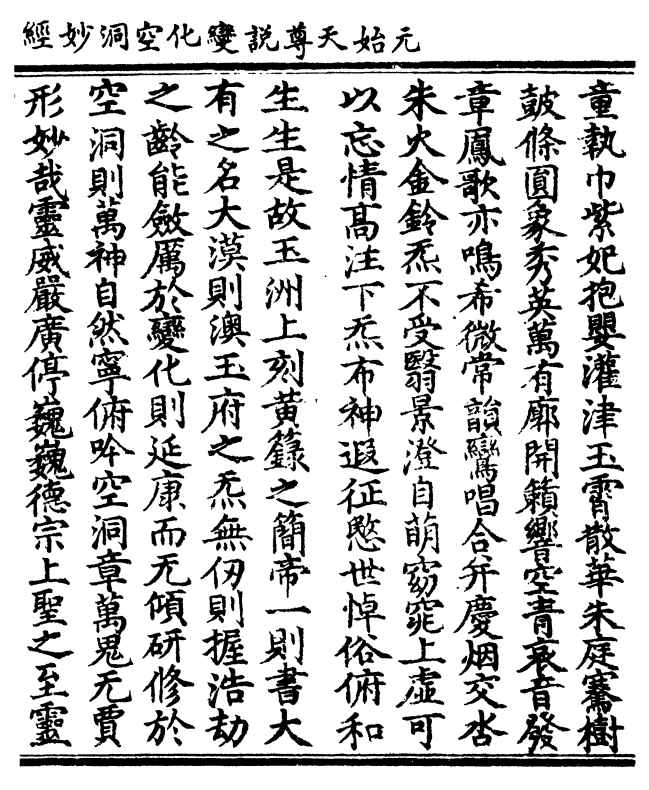 元始天尊說變化空洞妙經
童執巾紫妃抱嬰灌津玉霄散華朱庭騫樹
皷條圓象秀英萬有廓開籟響空青哀音發
章鳳歌亦鳴希微常韻鸞唱合弁慶烟交沓
朱火金鈴炁不受翳景澄自萌窈窕上虛可
以忘情高注下炁布神遐征愍世悼俗俯和
生生是故玉洲上刻黃籙之簡帝一則書大
有之名大漠則澳玉府之炁無仞則握浩劫
之齡能斂厲於變化則延康而无傾研修於
空洞則萬神自然寧俯吟空洞章萬鬼无賈
形妙哉靈威嚴廣停巍巍德宗上聖之至靈